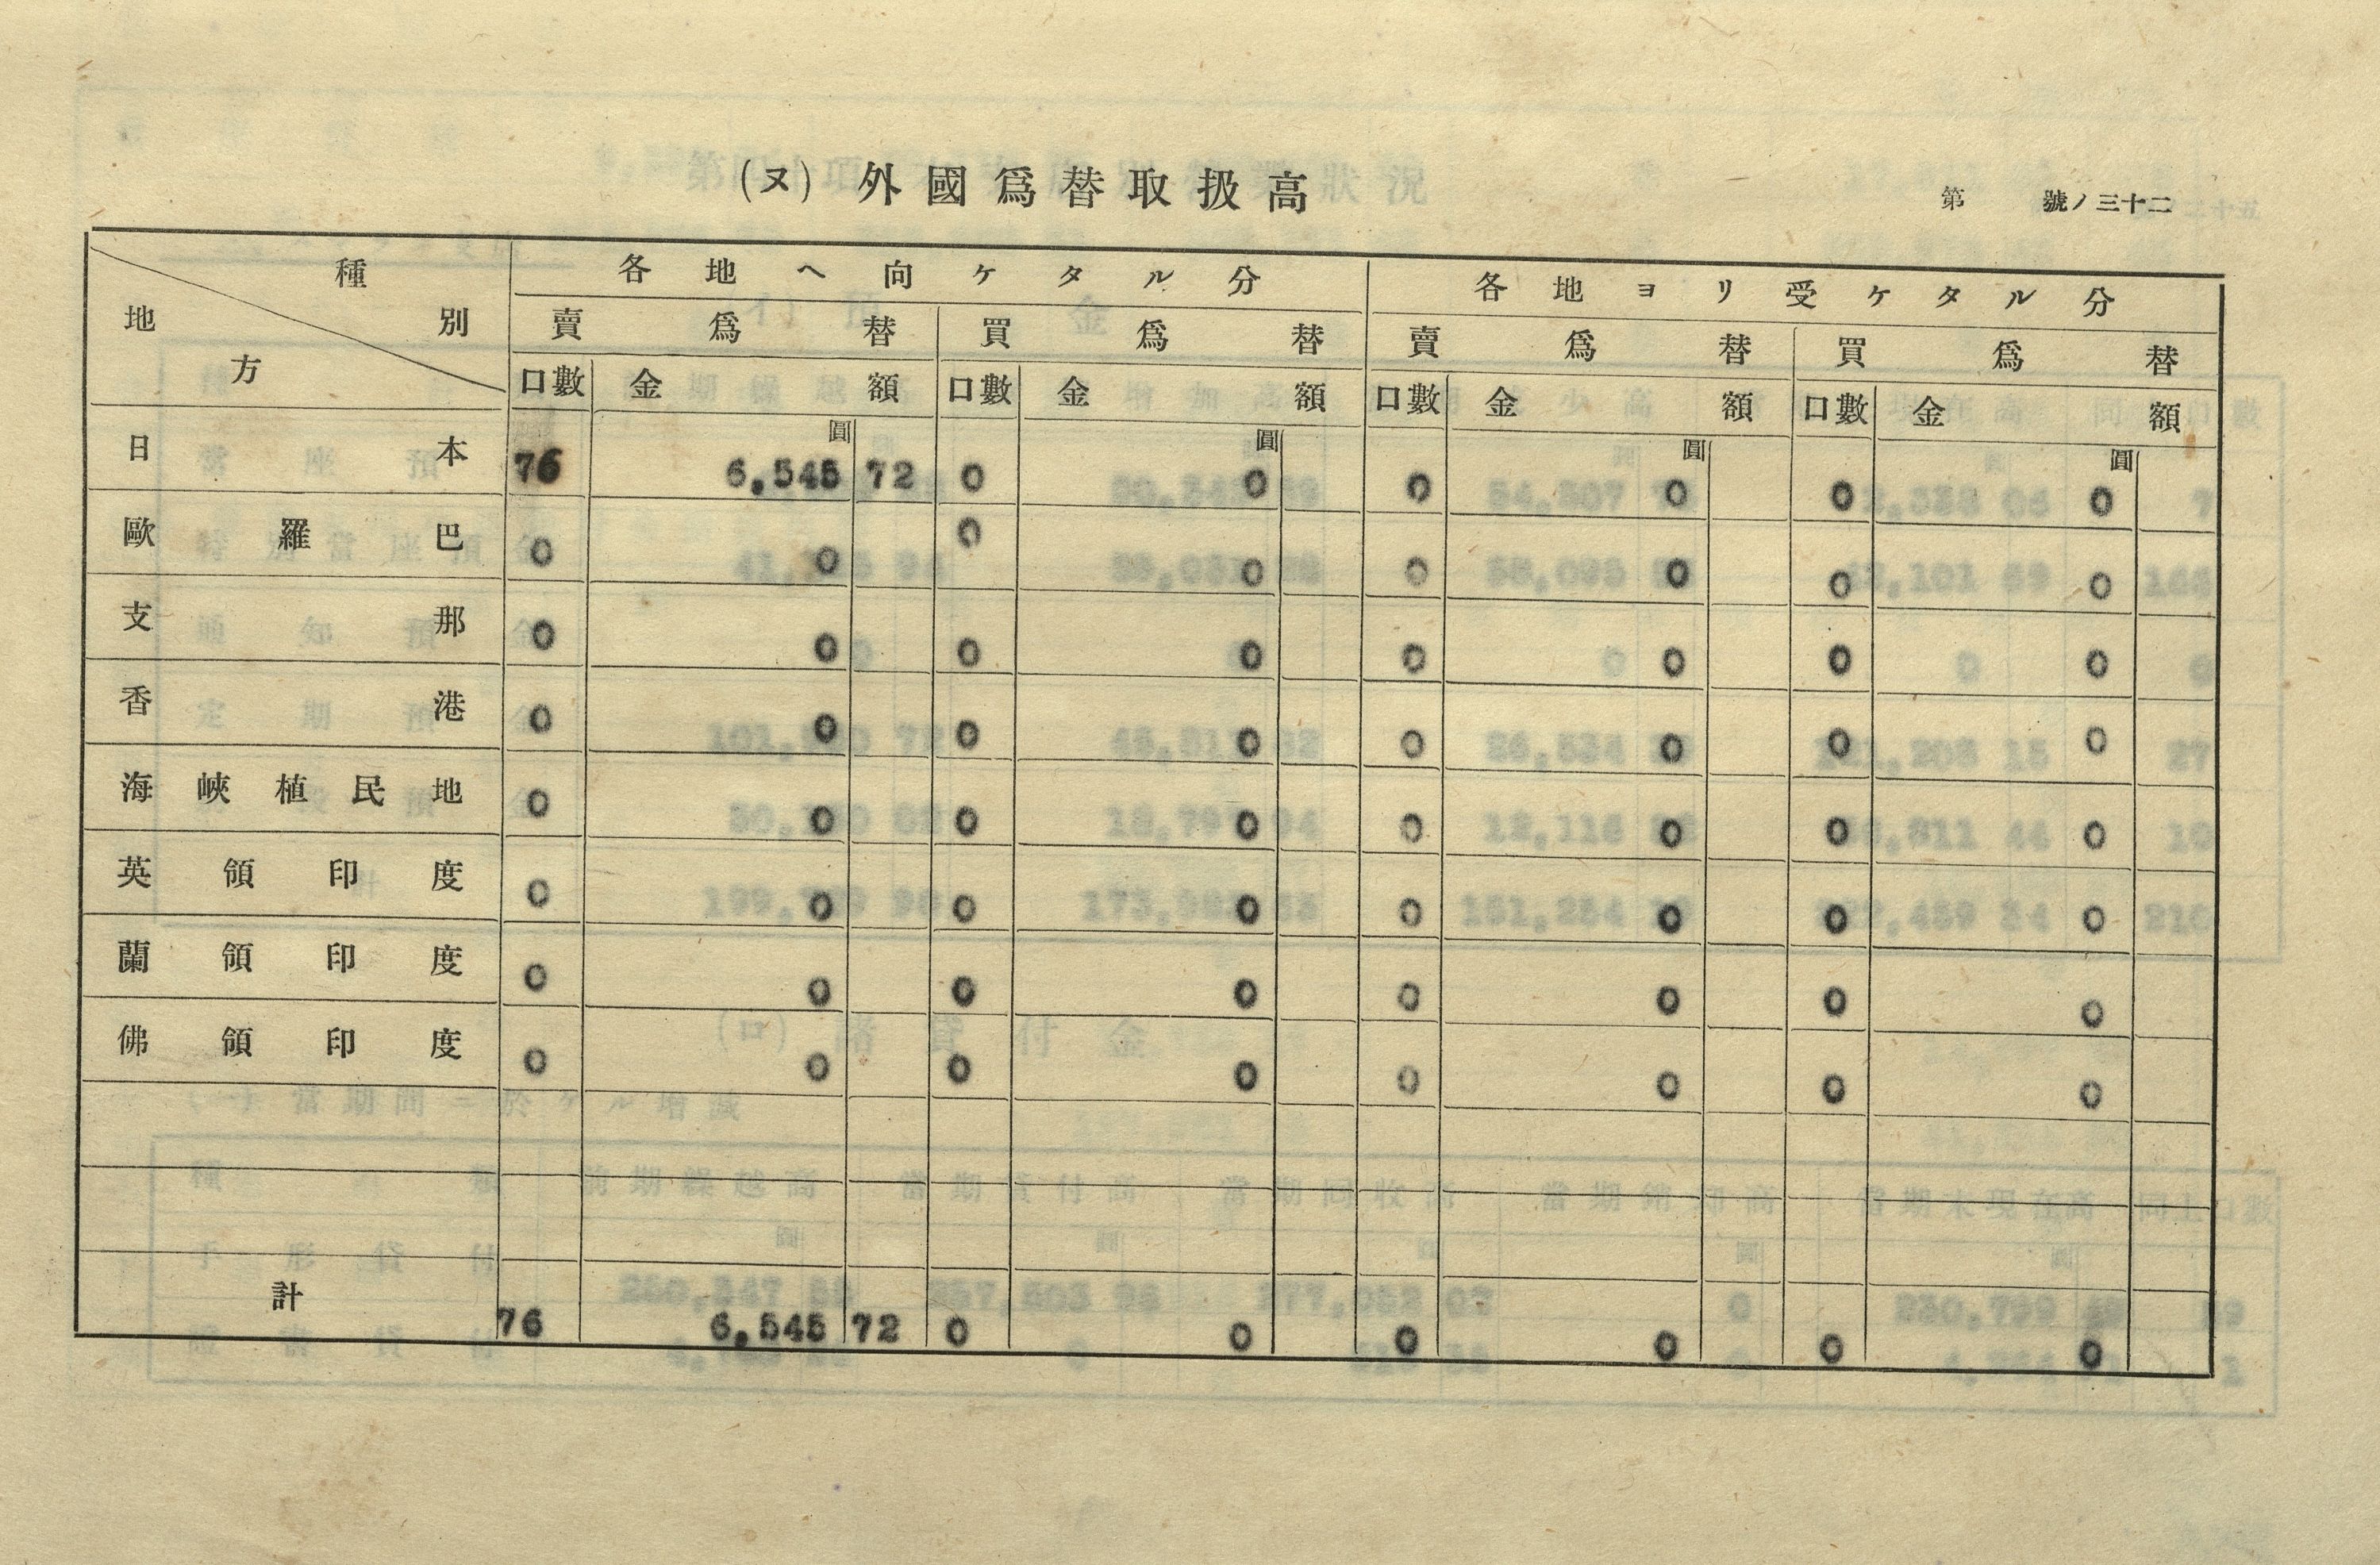 (ヌ) 外國爲替取扱高
第 號ノ三十二
種別 地方 各地ヘ向ケタル分 各地ヨリ受ケタル分
賣爲替 買爲替 賣爲替 買爲替
口數 金額 口數 金額 口數 金額 口數 金額
圓 圓 圓 圓
日本 76 6,545 72 0 0 0 0 0 0
歐羅巴 0 0 0 0 0 0 0 0
支那 0 0 0 0 0 0 0 0
香港 0 0 0 0 0 0 0 0
海峽植民地 0 0 0 0 0 0 0 0
英領印度 0 0 0 0 0 0 0 0
蘭領印度 0 0 0 0 0 0 0 0
佛領印度 0 0 0 0 0 0 0 0
計 76 6,545 72 0 0 0 0 0 0